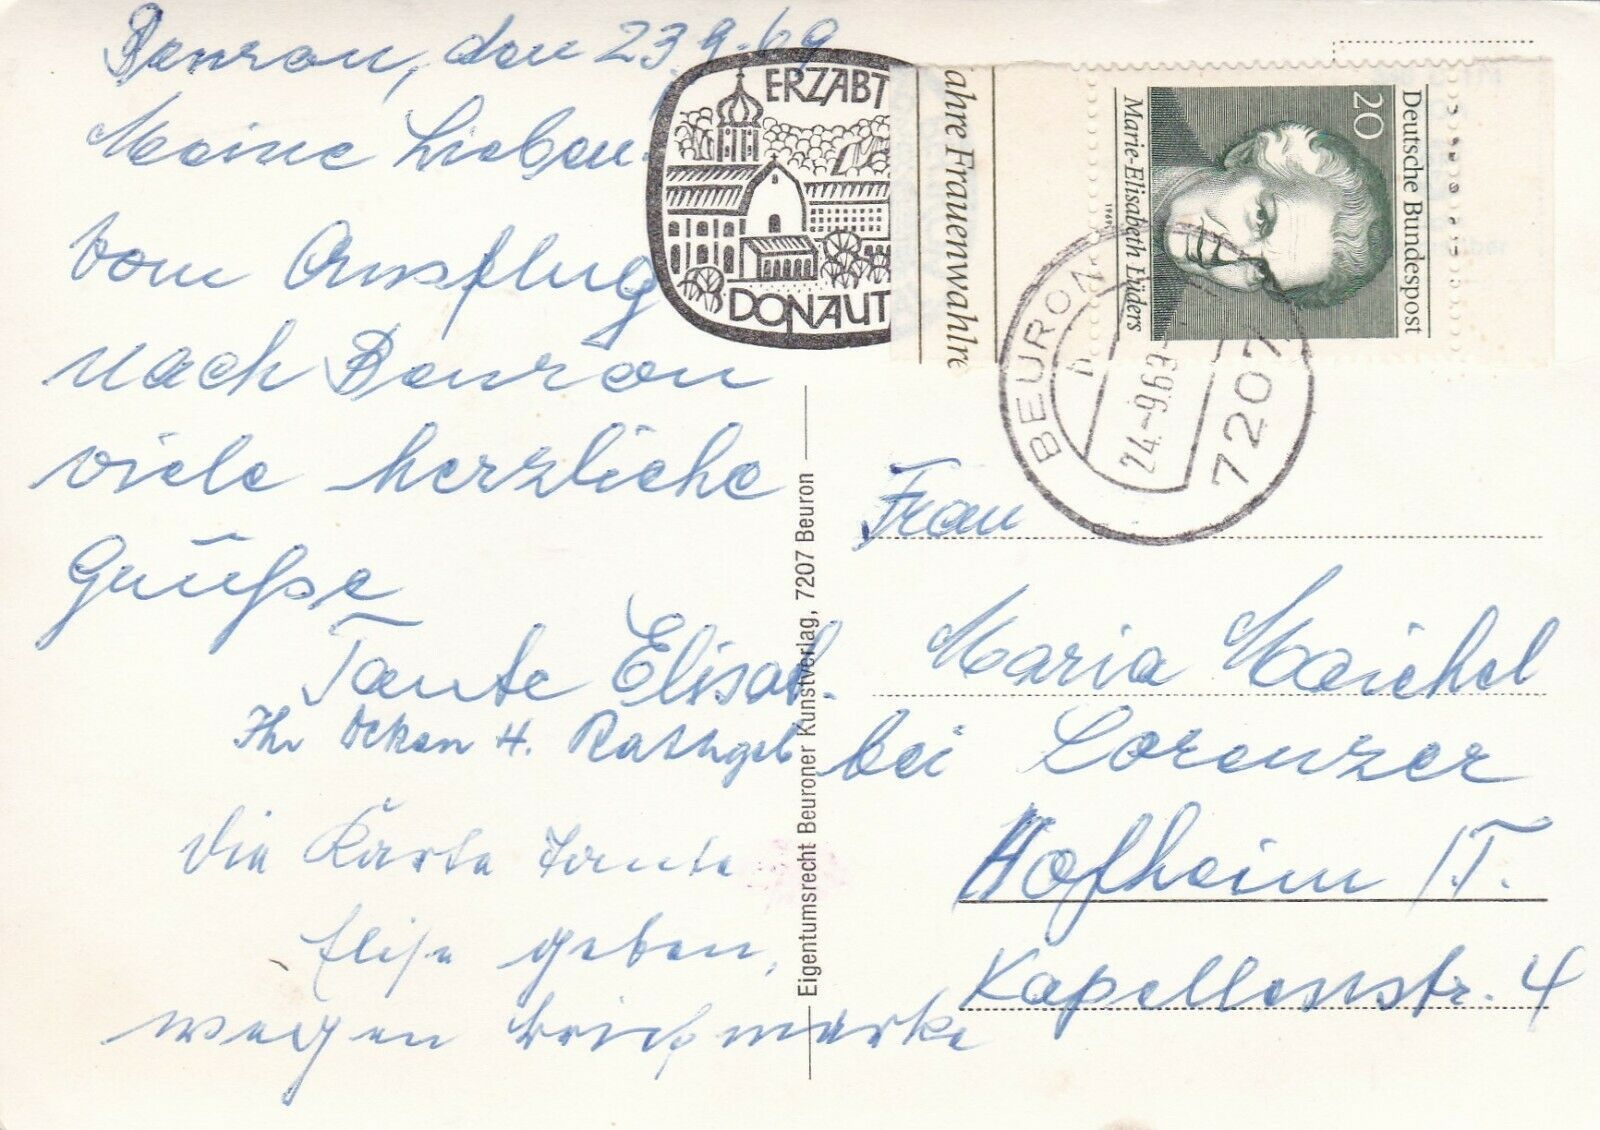 Beuron, den 23.9.69
Meine Lieben.
vom Ausflug
nach Beuron
viele herzliche
Grüße
Tante Elisab.
Ihr H. Rathgeb
die Karte Tante
Elise geben,
wegen Briefmarke
ERZABT
DONAUT
ahre Frauenwahlre
20
Deutsche Bundespost
Marie-Elisabeth Lüders
1969
BEURON
h
24.-9.69-
7207
Eigentumsrecht Beuroner Kunstverlag, 7207 Beuron
Frau
Maria Maichel
bei Lorenzer
Hofheim /T.
Kapellenstr. 4